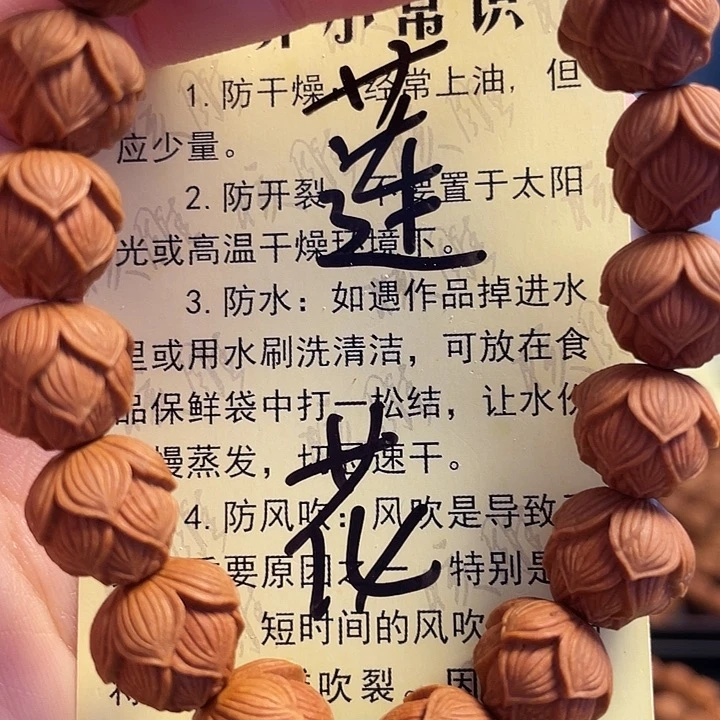 小常识
1.防干燥：经常上油，但
应少量。
2.防开裂：不要置于太阳
光或高温干燥环境下。
3.防水：如遇作品掉进水
里或用水刷洗清洁，可放在食
品保鲜袋中打一松结，让水份
慢蒸发，切忌速干。
4.防风吹：风吹是导致
要原因之一 特别是
短时间的风吹
吹裂。因
莲
花